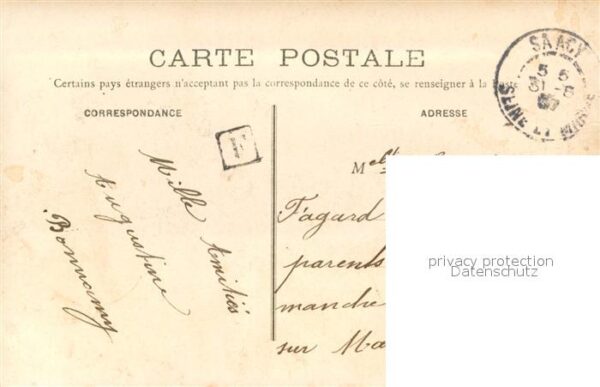 CARTE POSTALE
Certains pays étrangers n'acceptant pas la correspondance de ce côté, se renseigner à la Poste
CORRESPONDANCE
ADRESSE
SAACY
5 5
31-8
07
SEINE ET MARNE
Mille Amitiés
Augustine
Bonnamy
Melle
Fagard
parents
manche
sur Ma
privacy protection
Datenschutz